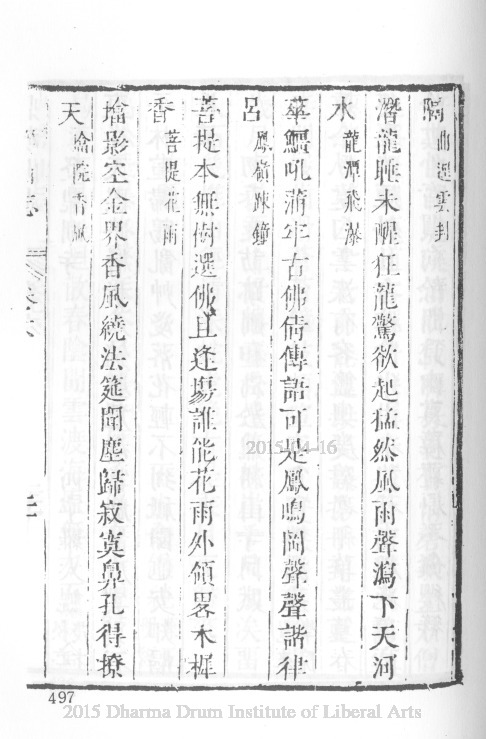 隔 曲逕雲封
潛龍睡未醒狂龍驚欲起猛然風雨聲瀉下天河
水 龍潭飛瀑
華鯨吼蒲牢古佛倩傳語可是鳳鳴岡聲聲諧律
呂 鳳嶺踈鐘
菩提本無樹選佛且逢場誰能花雨外領畧木樨
香 菩提花雨
墖影空金界香風繞法筵聞塵歸寂寞鼻孔得撩
天 墖院香風
志
2015-04-16
497
2015 Dharma Drum Institute of Liberal Arts